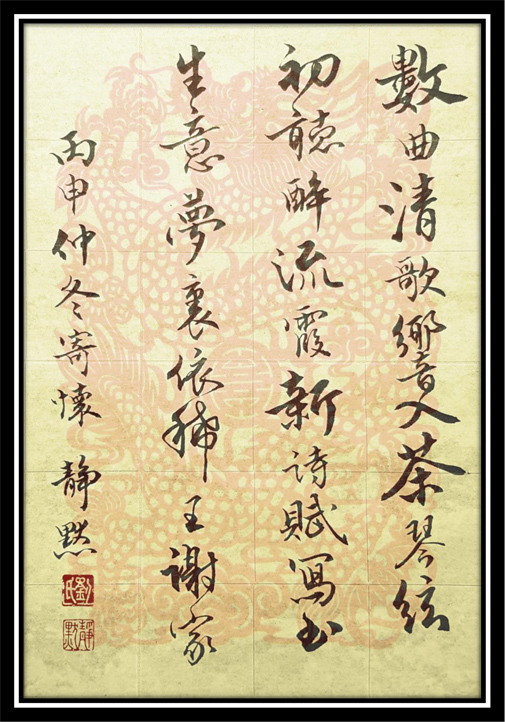 數曲清歌響入茶琴絃
初聽醉流霞新詩賦寫出
生意夢裏依稀王謝家
丙申仲冬寄懷 靜默
劉氏
靜默